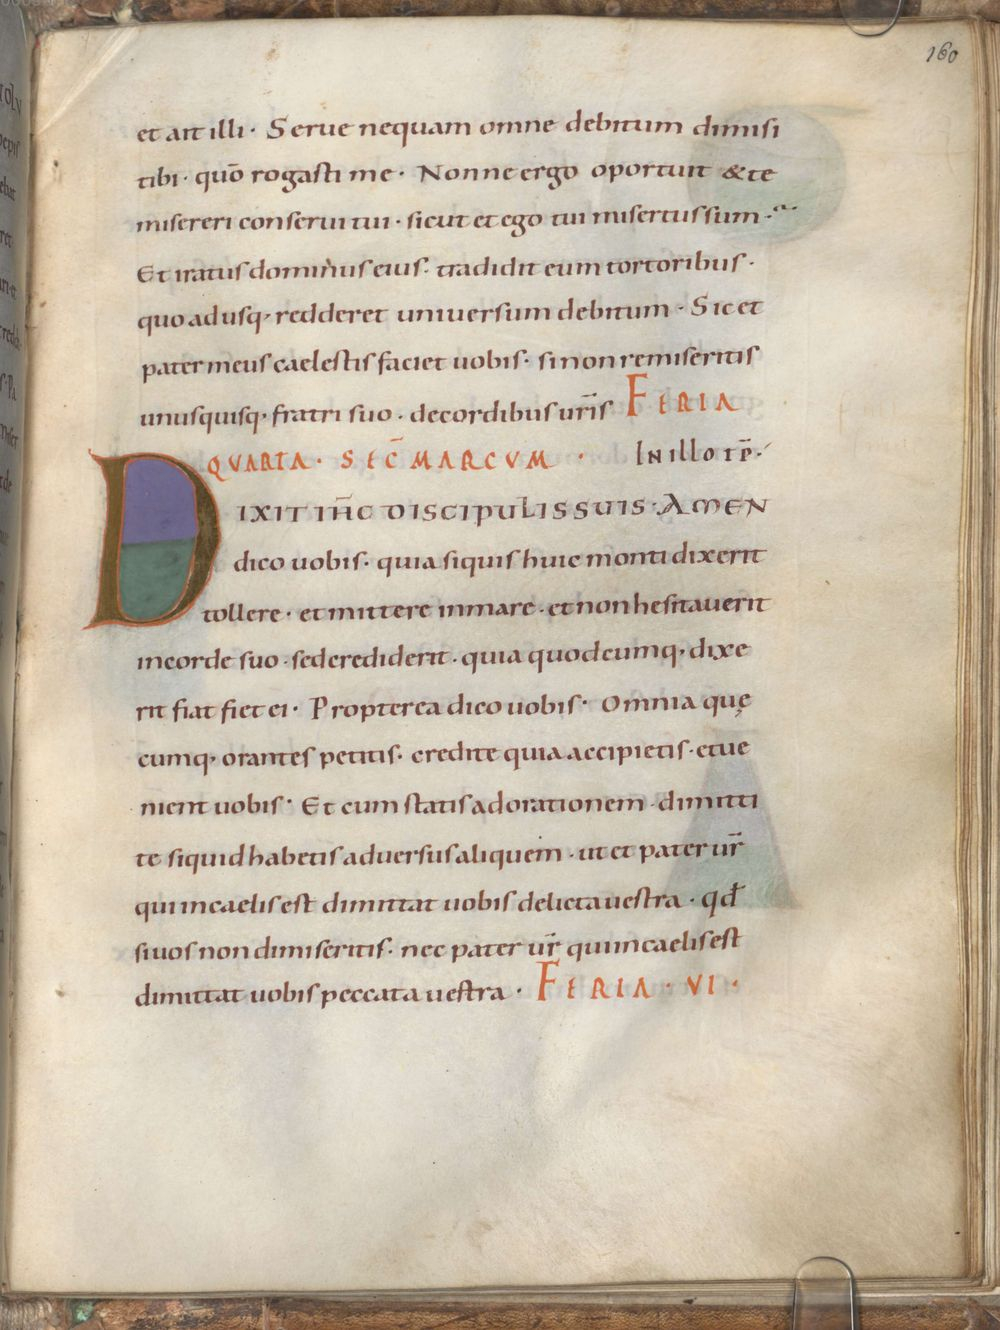 160
et ait illi · Serue nequam omne debitum dimisi
tibi · quō rogasti me · Nonne ergo oportuit & te
misereri conserui tui · sicut et ego tui misertus sum ·
Et iratus dominus eius · tradidit eum tortoribus ·
quo ad usq; redderet uniuersum debitum · Sic et
pater meus caelestis faciet uobis · si non remiseritis
unusquisq; fratri suo · de cordibus ur̄is FERIA
QVARTA · SEC̄ MARCVM · In illo tp̄ ·
DIXIT IH̄C DISCIPULIS SUIS · AMEN
dico uobis · quia siquis huic monti dixerit
tollere · et mittere in mare · et non hesitauerit
in corde suo · sed crediderit · quia quodcumq; dixe
rit fiat fiet ei · Propterea dico uobis · Omnia quę
cumq; orantes petitis · credite quia accipietis · et ue
nient uobis · Et cum statis ad orationem · dimitti
te siquid habetis aduersus aliquem · ut et pater ur̄
qui in caelis est dimittat uobis delicta uestra · qd̄
si uos non dimiseritis · nec pater ur̄ qui in caelis est
dimittat uobis peccata uestra · FERIA · VI ·